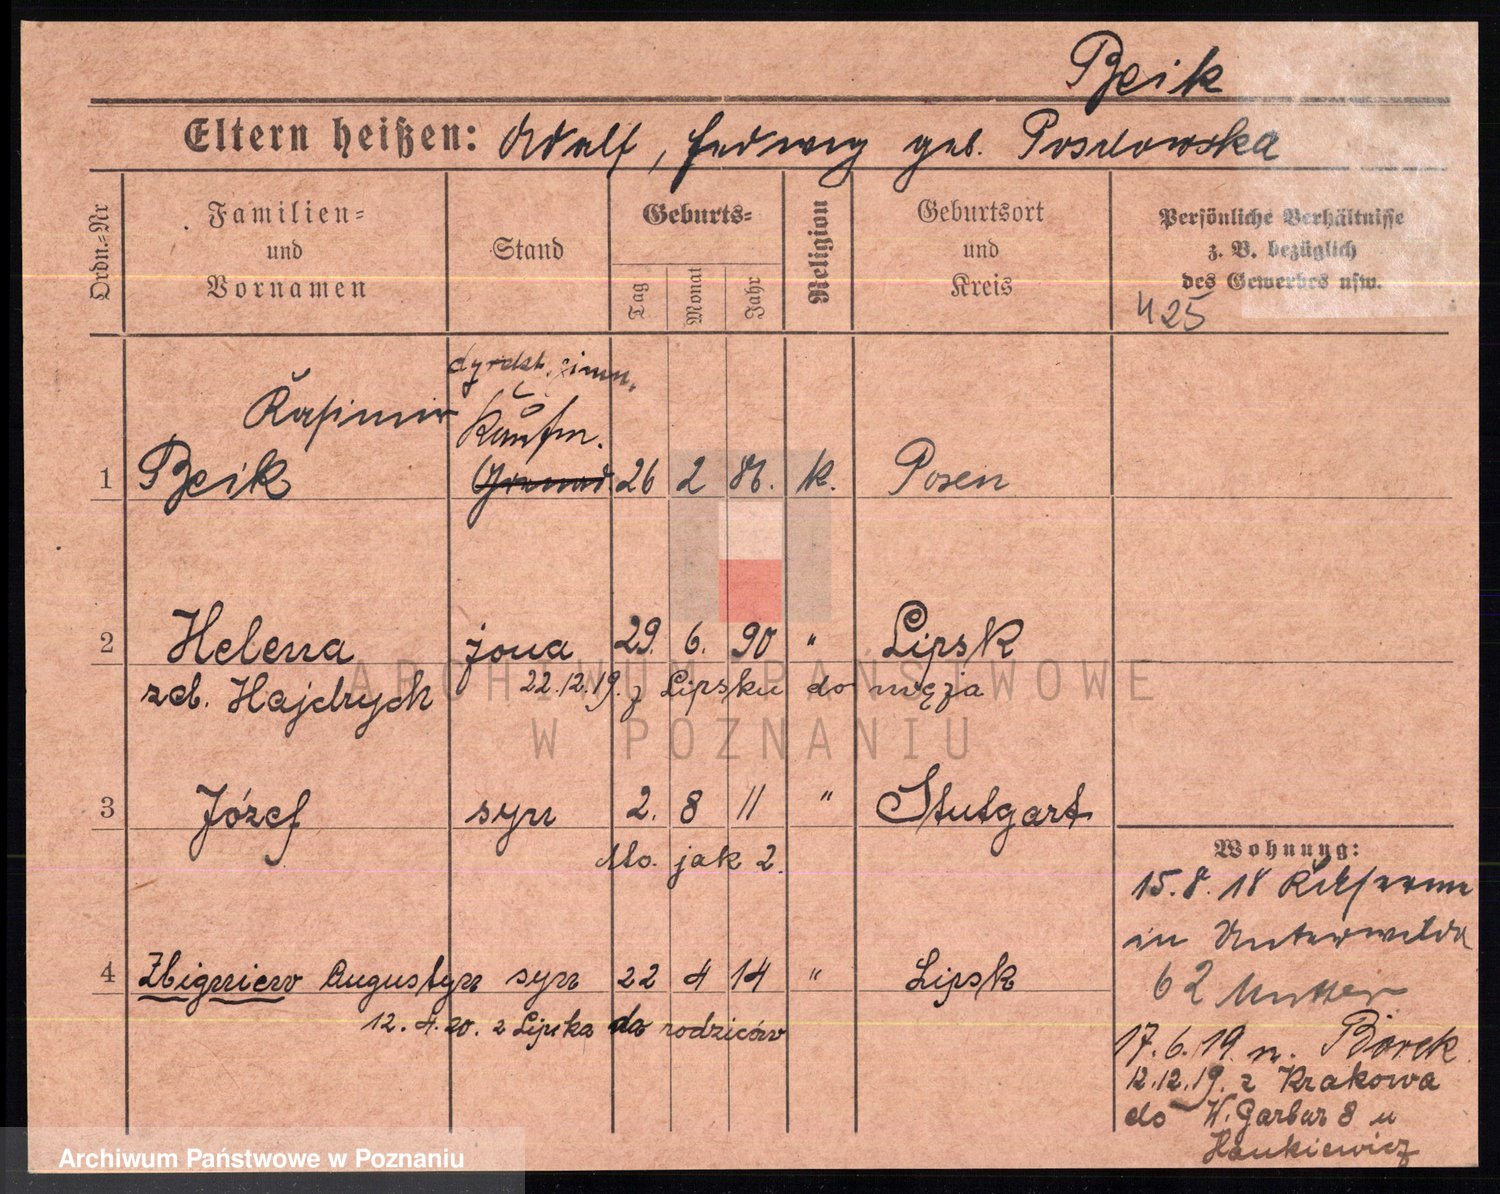 Beik
Eltern heißen: Adolf, Hedwig geb. Poslowska
Ordn.=Nr
Familien=
und
Vornamen
Stand
Geburts=
Tag
Monat
Jahr
Religion
Geburtsort
und
Kreis
Persönliche Verhältnisse
z. B. bezüglich
des Gewerbes usw.
425
Kasimir
Kaufm.
1 Beik 26 2 86. k. Posen
2 Helena żona 29. 6. 90 " Lipsk
zeb. Hajdrych 22.12.19. z Lipsku do męża
3 Józef syn 2. 8 11 " Stutgart
jak 2.
4 Zbigniew Augustyn syn 22 4 14 " Lipsk
12.4.20. z Lipska do rodziców
Wohnung:
15.8.18
in Unterwilda
62 Mutter
17.6.19 n. Borek
12.12.19. z Krakowa
do W. Garbar 8 u
Hankiewicz
ARCHIWUM PAŃSTWOWE
W POZNANIU
Archiwum Państwowe w Poznaniu